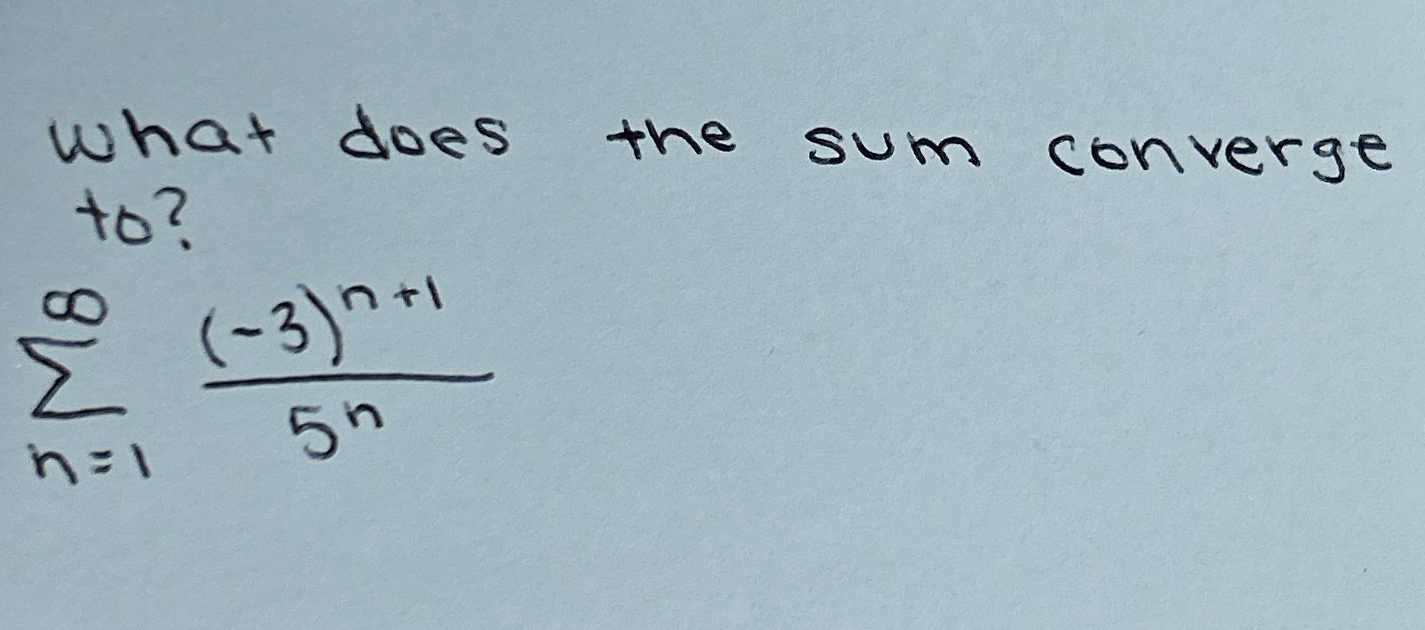 what does the sum converge
to?
∞
∑ (-3)^{n+1} / 5^n
n=1